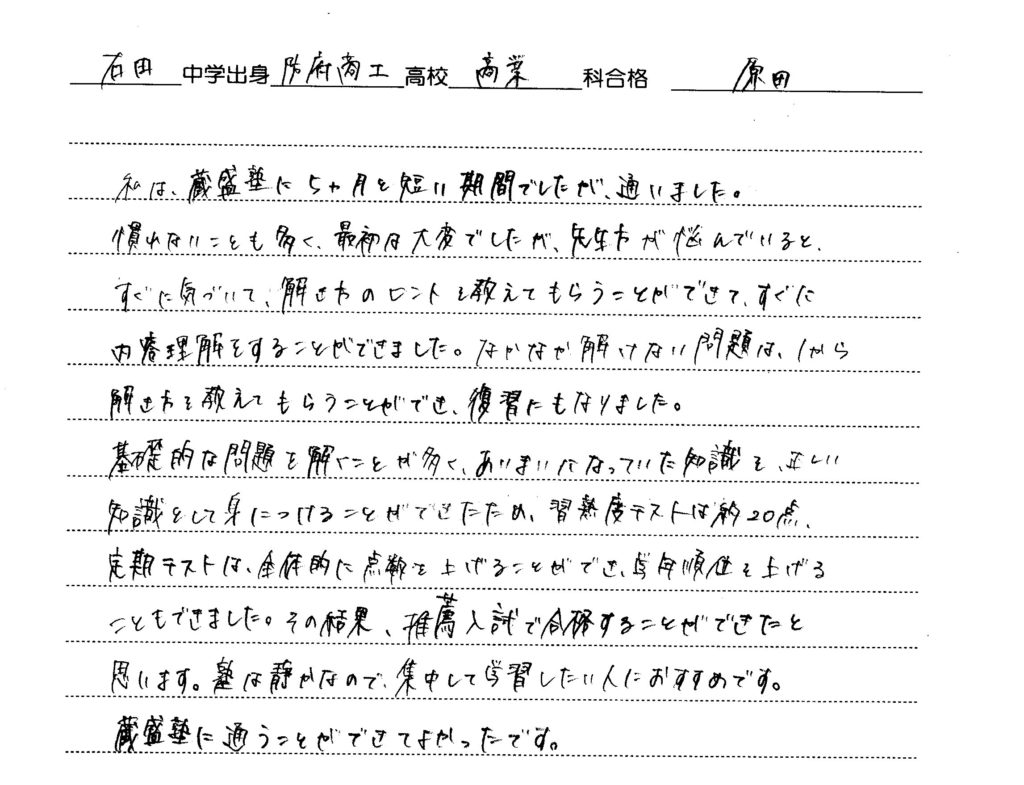 右田 中学出身 防府商工 高校 商業 科合格 原田
私は、蔵盛塾に5ヶ月と短い期間でしたが、通いました。
慣れないことも多く、最初は大変でしたが、先生方が悩んでいると、
すぐに気づいて、解き方のヒントを教えてもらうことができて、すぐに
内容理解をすることができました。なかなか解けない問題は、1から
解き方を教えてもらうことができ、復習にもなりました。
基礎的な問題を解くことが多く、あいまいになっていた知識を、正しい
知識として身につけることができたため、習熟度テストは約20点、
定期テストは、全体的に点数を上げることができ、学年順位を上げる
こともできました。その結果、推薦入試で合格することができたと
思います。塾は静かなので、集中して学習したい人におすすめです。
蔵盛塾に通うことができてよかったです。